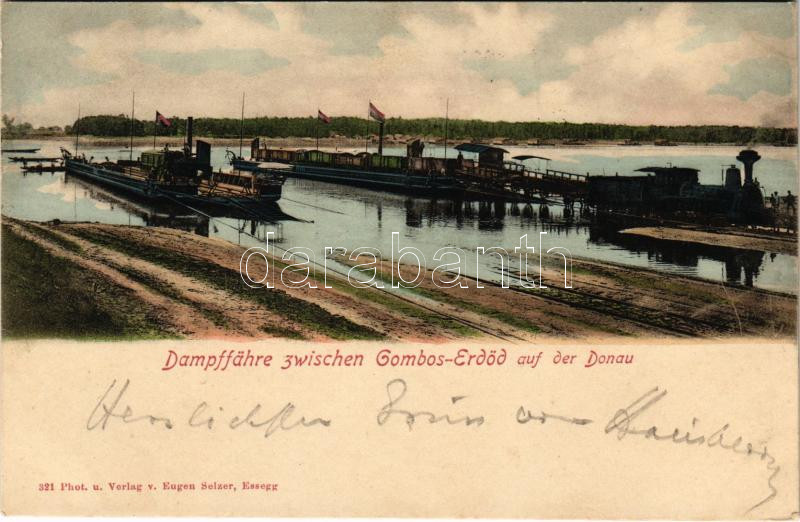 darabanth
Dampffähre zwischen Gombos-Erdöd auf der Donau
Herzlichsten
321 Phot. u. Verlag v. Eugen Selzer, Essegg